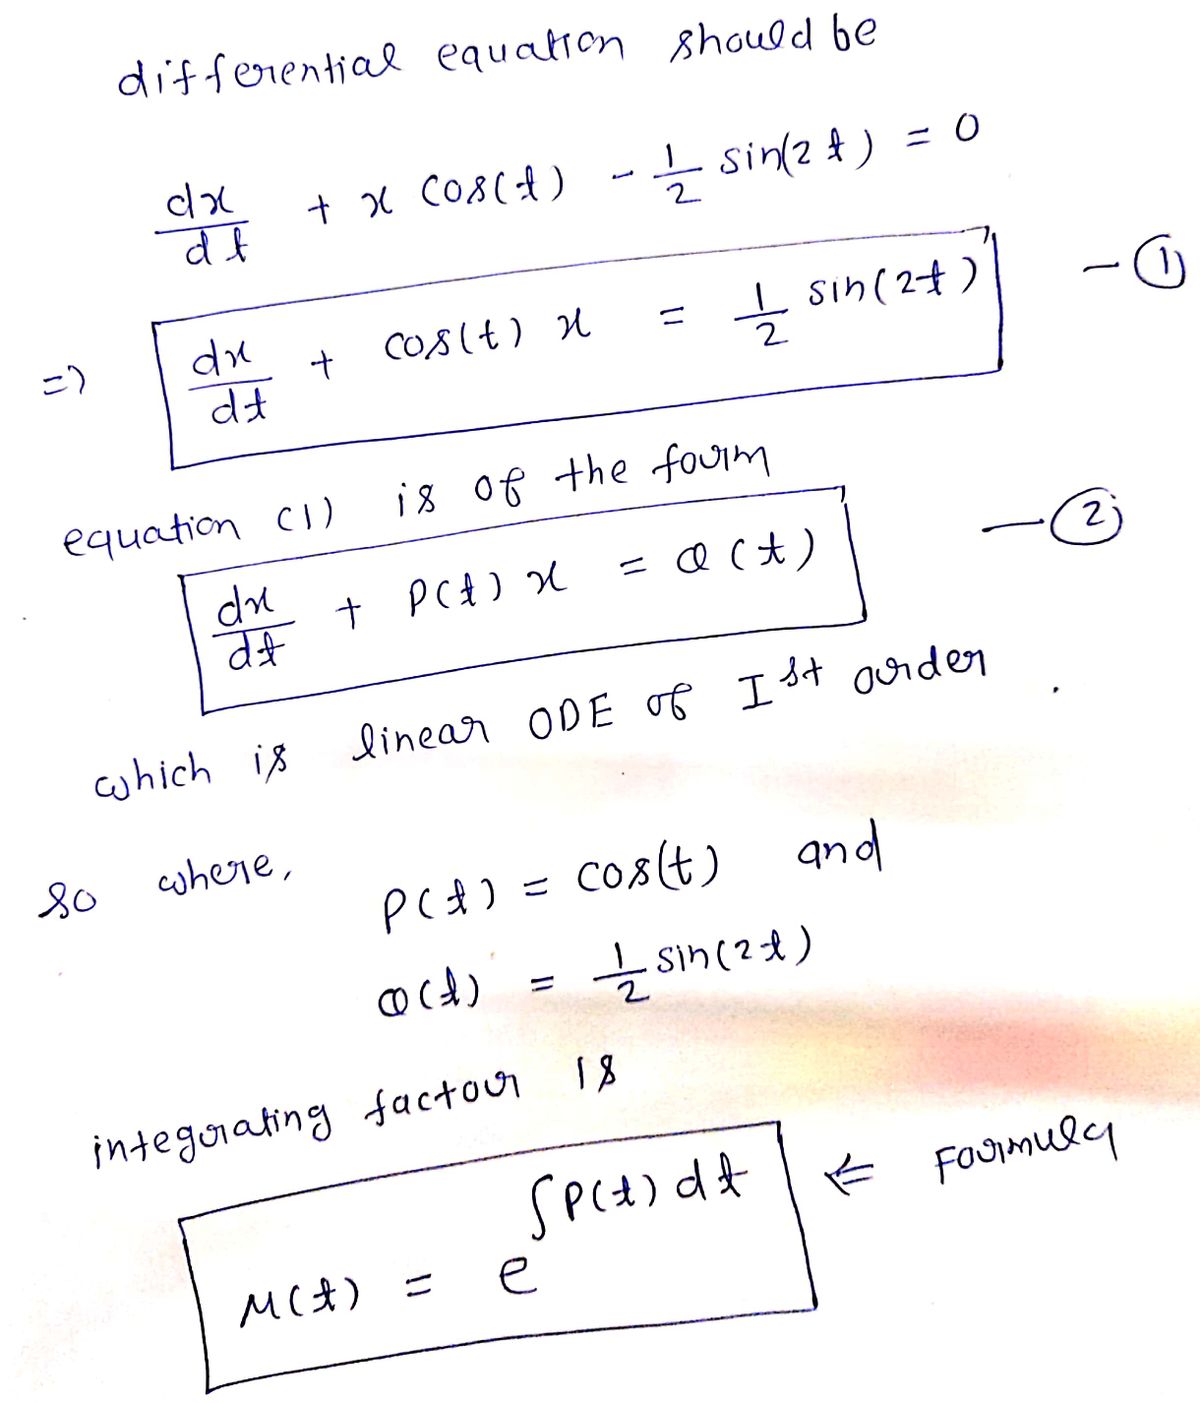 differential equation should be
dx/dt + x cos(t) - 1/2 sin(2t) = 0
=> dx/dt + cos(t) x = 1/2 sin(2t) - (1)
equation (1) is of the form
dx/dt + P(t) x = Q(t) - (2)
which is linear ODE of Ist order.
so where, P(t) = cos(t) and
Q(t) = 1/2 sin(2t)
integrating factor is
M(t) = e^∫P(t)dt ⇐ Formula